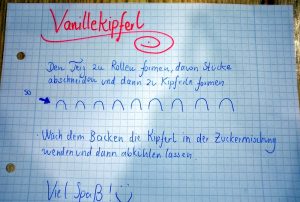 Vanillekipferl
Den Teig zu Rollen formen, davon Stücke
abschneiden und dann zu Kipferln formen
so
Nach dem Backen die Kipferl in der Zuckermischung
wenden und dann abkühlen lassen.
Viel Spaß!